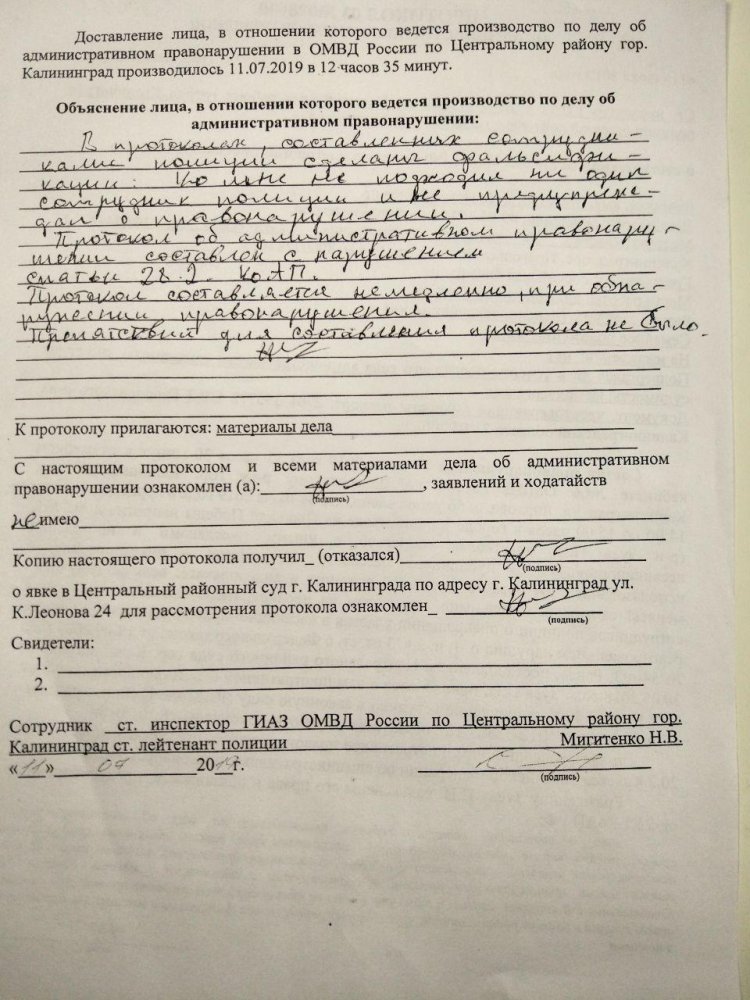 Доставление лица, в отношении которого ведется производство по делу об
административном правонарушении в ОМВД России по Центральному району гор.
Калининград производилось 11.07.2019 в 12 часов 35 минут.
Объяснение лица, в отношении которого ведется производство по делу об
административном правонарушении:
В протоколах, составленных сотрудни-
ками полиции сделаны фальсифи-
кации: Ко мне не подходил ни один
сотрудник полиции и не предупреж-
дал о правонарушении.
Протокол об административном правонару-
шении составлен с нарушением
статьи 28.2. КоАП.
Протокол составляется немедленно, при обна-
ружении правонарушения.
Препятствий для составления протокола не было.
К протоколу прилагаются: материалы дела
С настоящим протоколом и всеми материалами дела об административном
правонарушении ознакомлен (а): , заявлений и ходатайств
(подпись)
не имею
Копию настоящего протокола получил_ (отказался)
(подпись)
о явке в Центральный районный суд г. Калининграда по адресу г. Калининград ул.
К.Леонова 24 для рассмотрения протокола ознакомлен_
(подпись)
Свидетели:
1.
2.
Сотрудник ст. инспектор ГИАЗ ОМВД России по Центральному району гор.
Калининград ст. лейтенант полиции Мигитенко Н.В.
«11» 07 2019г.
(подпись)